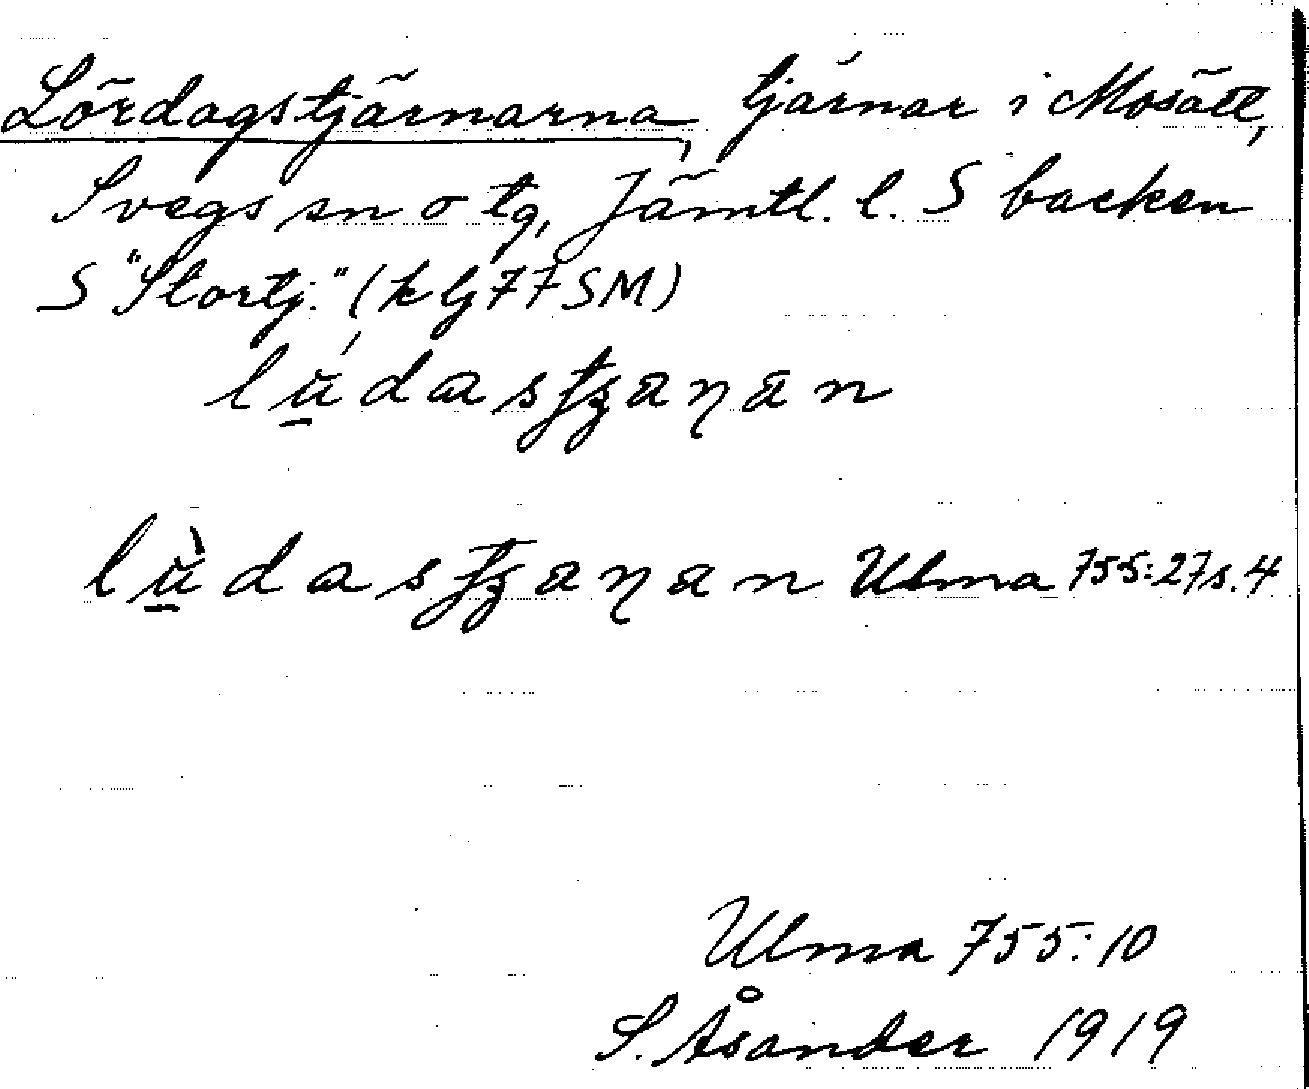 Lördagstjärnarna, tjärnar i Mosätt,
Svegs sn o tg, Jämtl. l. S backen
S "Stortj." (k bj 77 SM)
Ulma 755:27 s. 4
Ulma 755:10
S. Åsander 1919